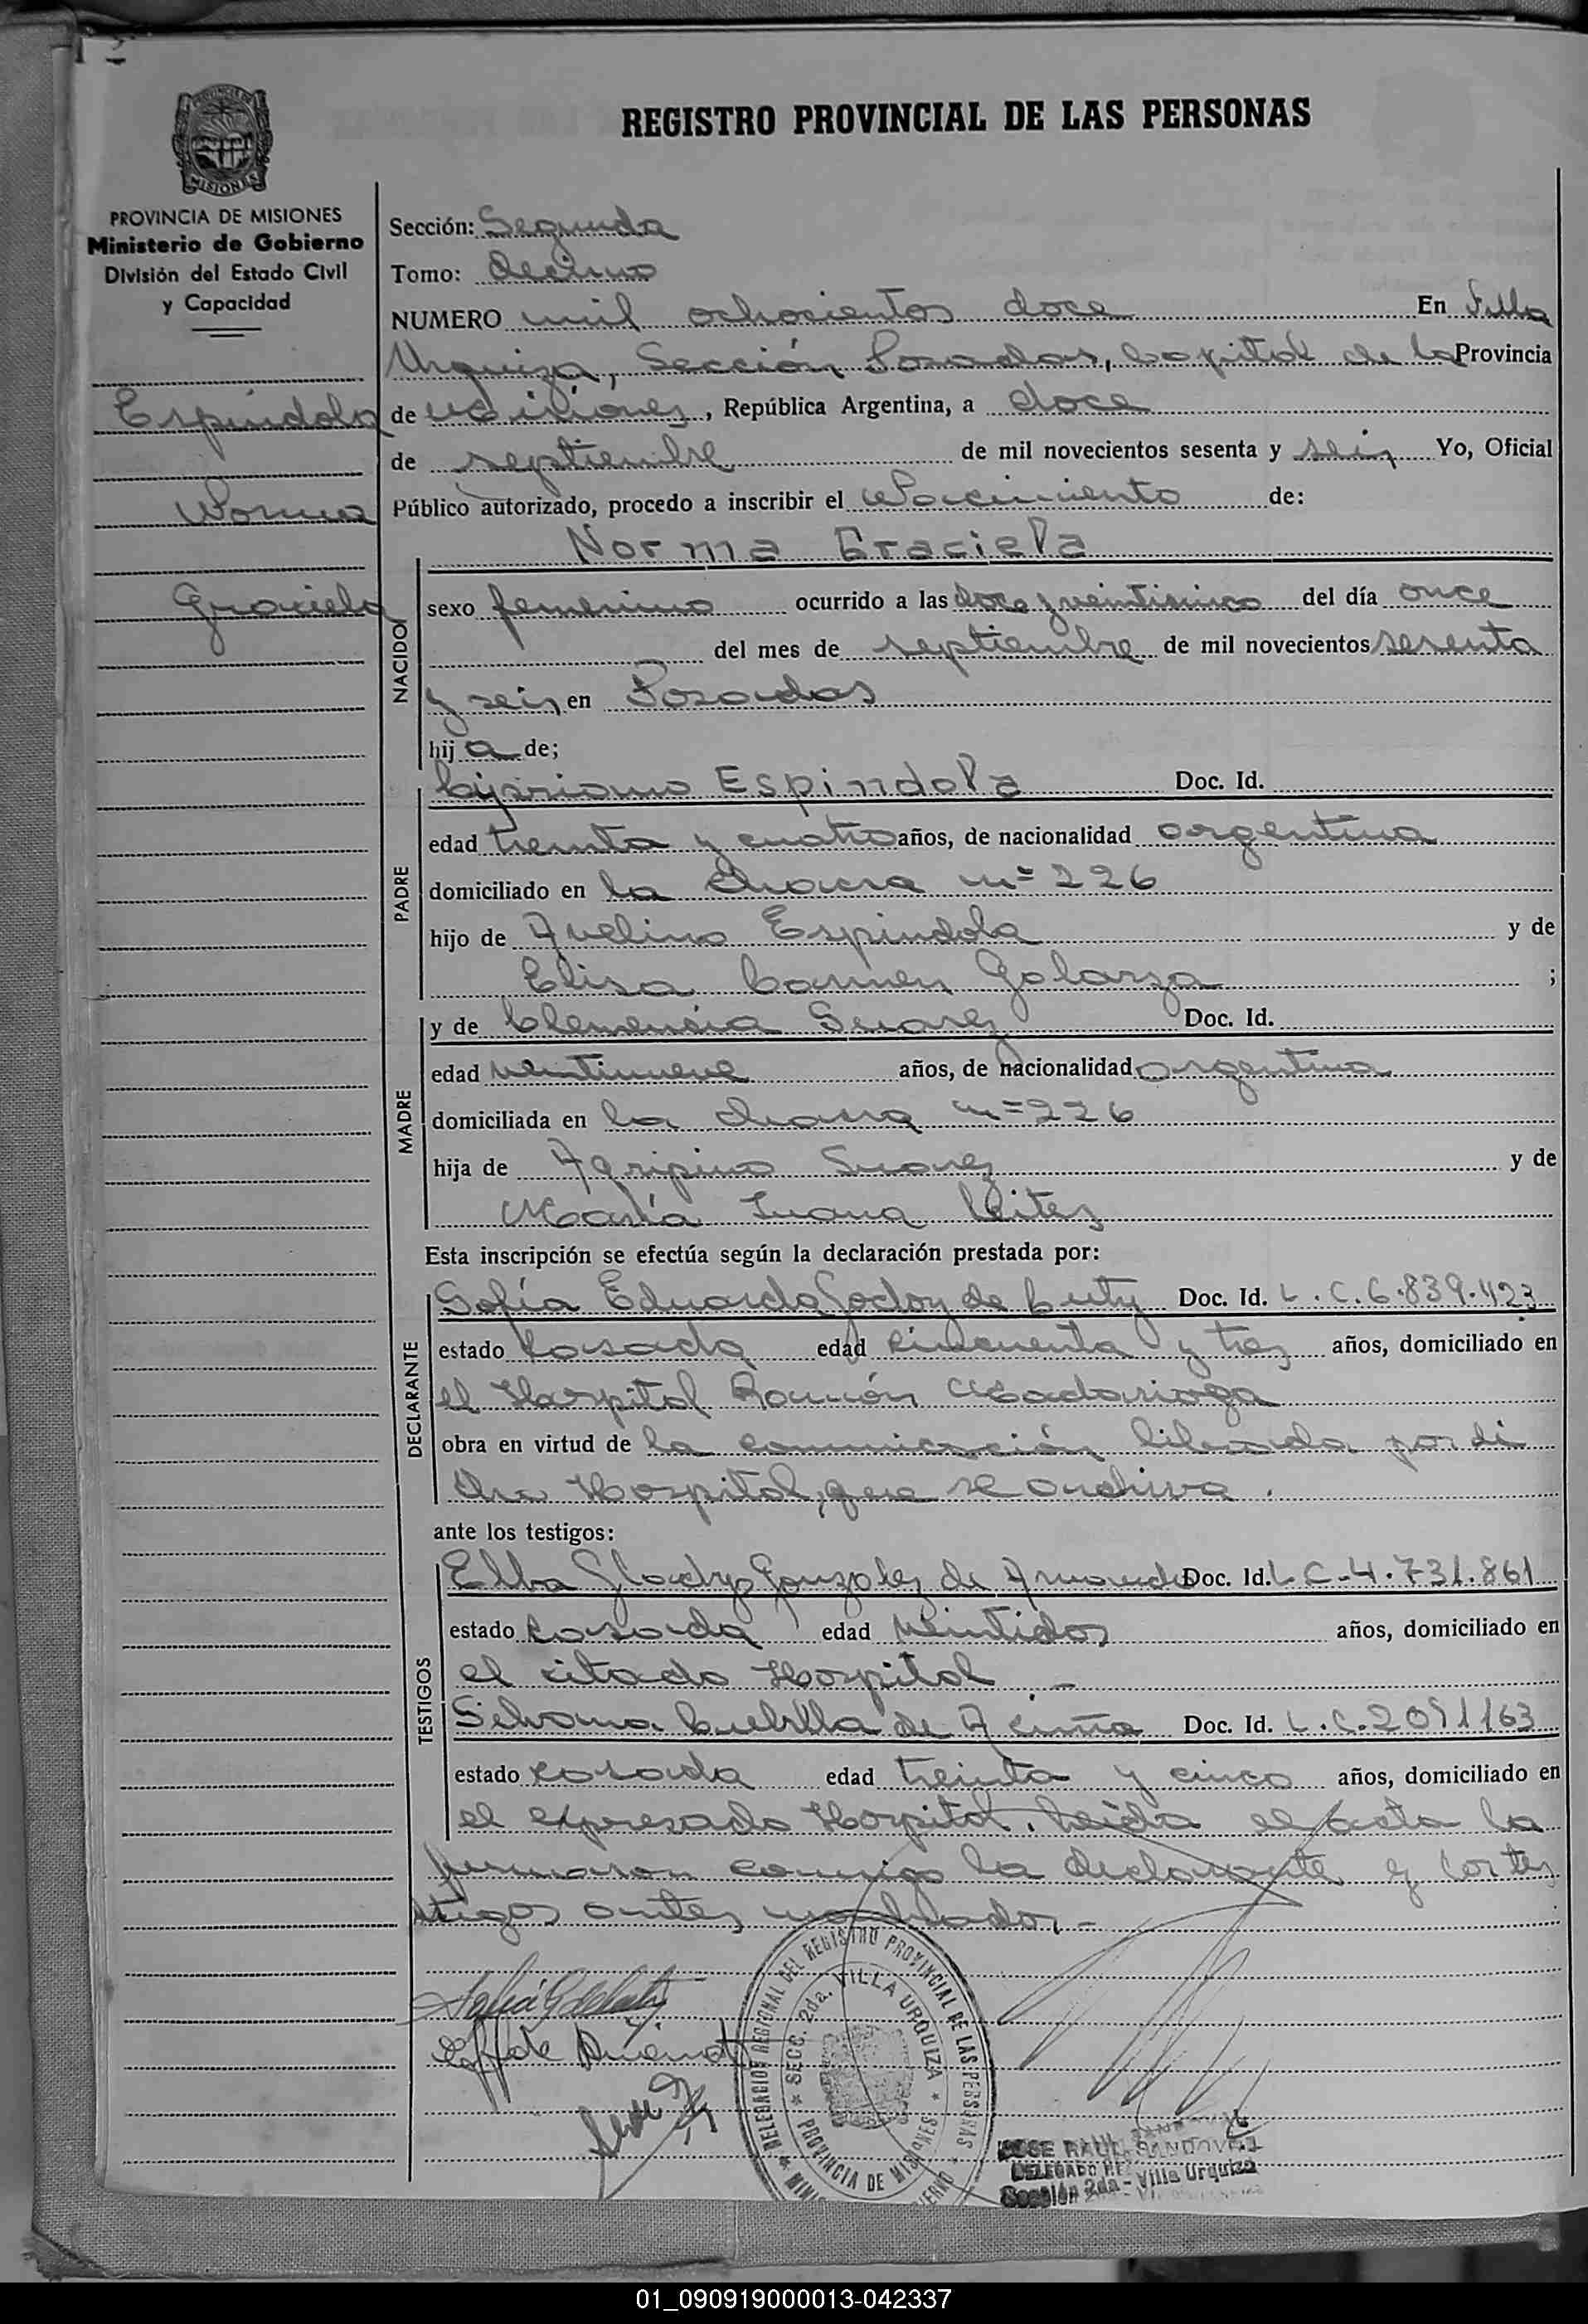 REGISTRO PROVINCIAL DE LAS PERSONAS
MISIONES
PROVINCIA DE MISIONES
Ministerio de Gobierno
División del Estado Civil
y Capacidad
Espíndola
Norma
Graciela
Sección: Segunda
Tomo: Decimo
NUMERO mil ochocientos doce En Villa
Urquiza, Sección Posadas, Capital de la Provincia
de Misiones, República Argentina, a doce
de septiembre de mil novecientos sesenta y seis Yo, Oficial
Público autorizado, procedo a inscribir el Nacimiento de:
Norma Graciela
NACIDO
sexo femenino ocurrido a las doce y veinticinco del día once
del mes de septiembre de mil novecientos sesenta
y seis en Posadas
hij a de;
PADRE
Cipriano Espindola Doc. Id.
edad treinta y cuatro años, de nacionalidad argentina
domiciliado en la chacra nº 226
hijo de Avelino Espindola y de
Elisa Carmen Galarza ;
MADRE
y de Clemencia Suarez Doc. Id.
edad veintinueve años, de nacionalidad argentina
domiciliada en la chacra nº 226
hija de Agripino Suarez y de
María Juana
Esta inscripción se efectúa según la declaración prestada por:
DECLARANTE
Sofía Eduarda Godoy de Doc. Id. L.C.6.839.423
estado casada edad cincuenta y tres años, domiciliado en
el Hospital Ramón Madariaga
obra en virtud de la comunicación librada por di
cho Hospital, que se archiva.
ante los testigos:
TESTIGOS
Elba Gladys Gonzalez de Doc. Id. L C-4.731.861
estado casada edad veintidos años, domiciliado en
el citado Hospital.-
Silvana de Acuña Doc. Id. L.C.2091163
estado casada edad treinta y cinco años, domiciliado en
el expresado Hospital. Leida el acta la
firmaron conmigo la declarante y los tes
tigos antes nombrados.-
DELEGACION REGIONAL DEL REGISTRO PROVINCIAL DE LAS PERSONAS
SECC. 2da. VILLA URQUIZA
PROVINCIA DE MISIONES
JOSE RAUL SANDOVAL
DELEGADO
Sección 2da - Villa Urquiza
01_090919000013-042337